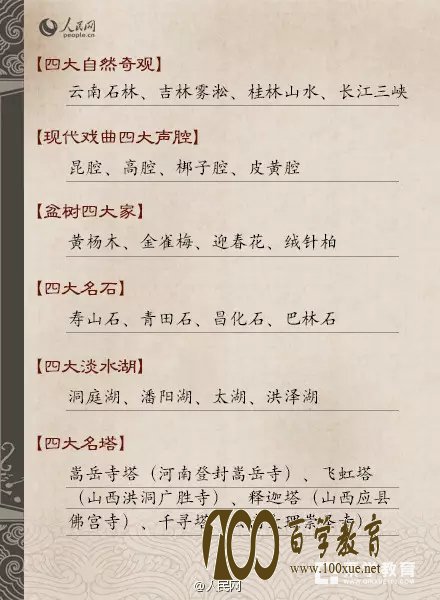 人民网
people.cn
【四大自然奇观】
云南石林、吉林雾凇、桂林山水、长江三峡
【现代戏曲四大声腔】
昆腔、高腔、梆子腔、皮黄腔
【盆树四大家】
黄杨木、金雀梅、迎春花、绒针柏
【四大名石】
寿山石、青田石、昌化石、巴林石
【四大淡水湖】
洞庭湖、潘阳湖、太湖、洪泽湖
【四大名塔】
嵩岳寺塔（河南登封嵩岳寺）、飞虹塔
（山西洪洞广胜寺）、释迦塔（山西应县
佛宫寺）、千寻塔
100百学教育
www.100xue.net
@人民网